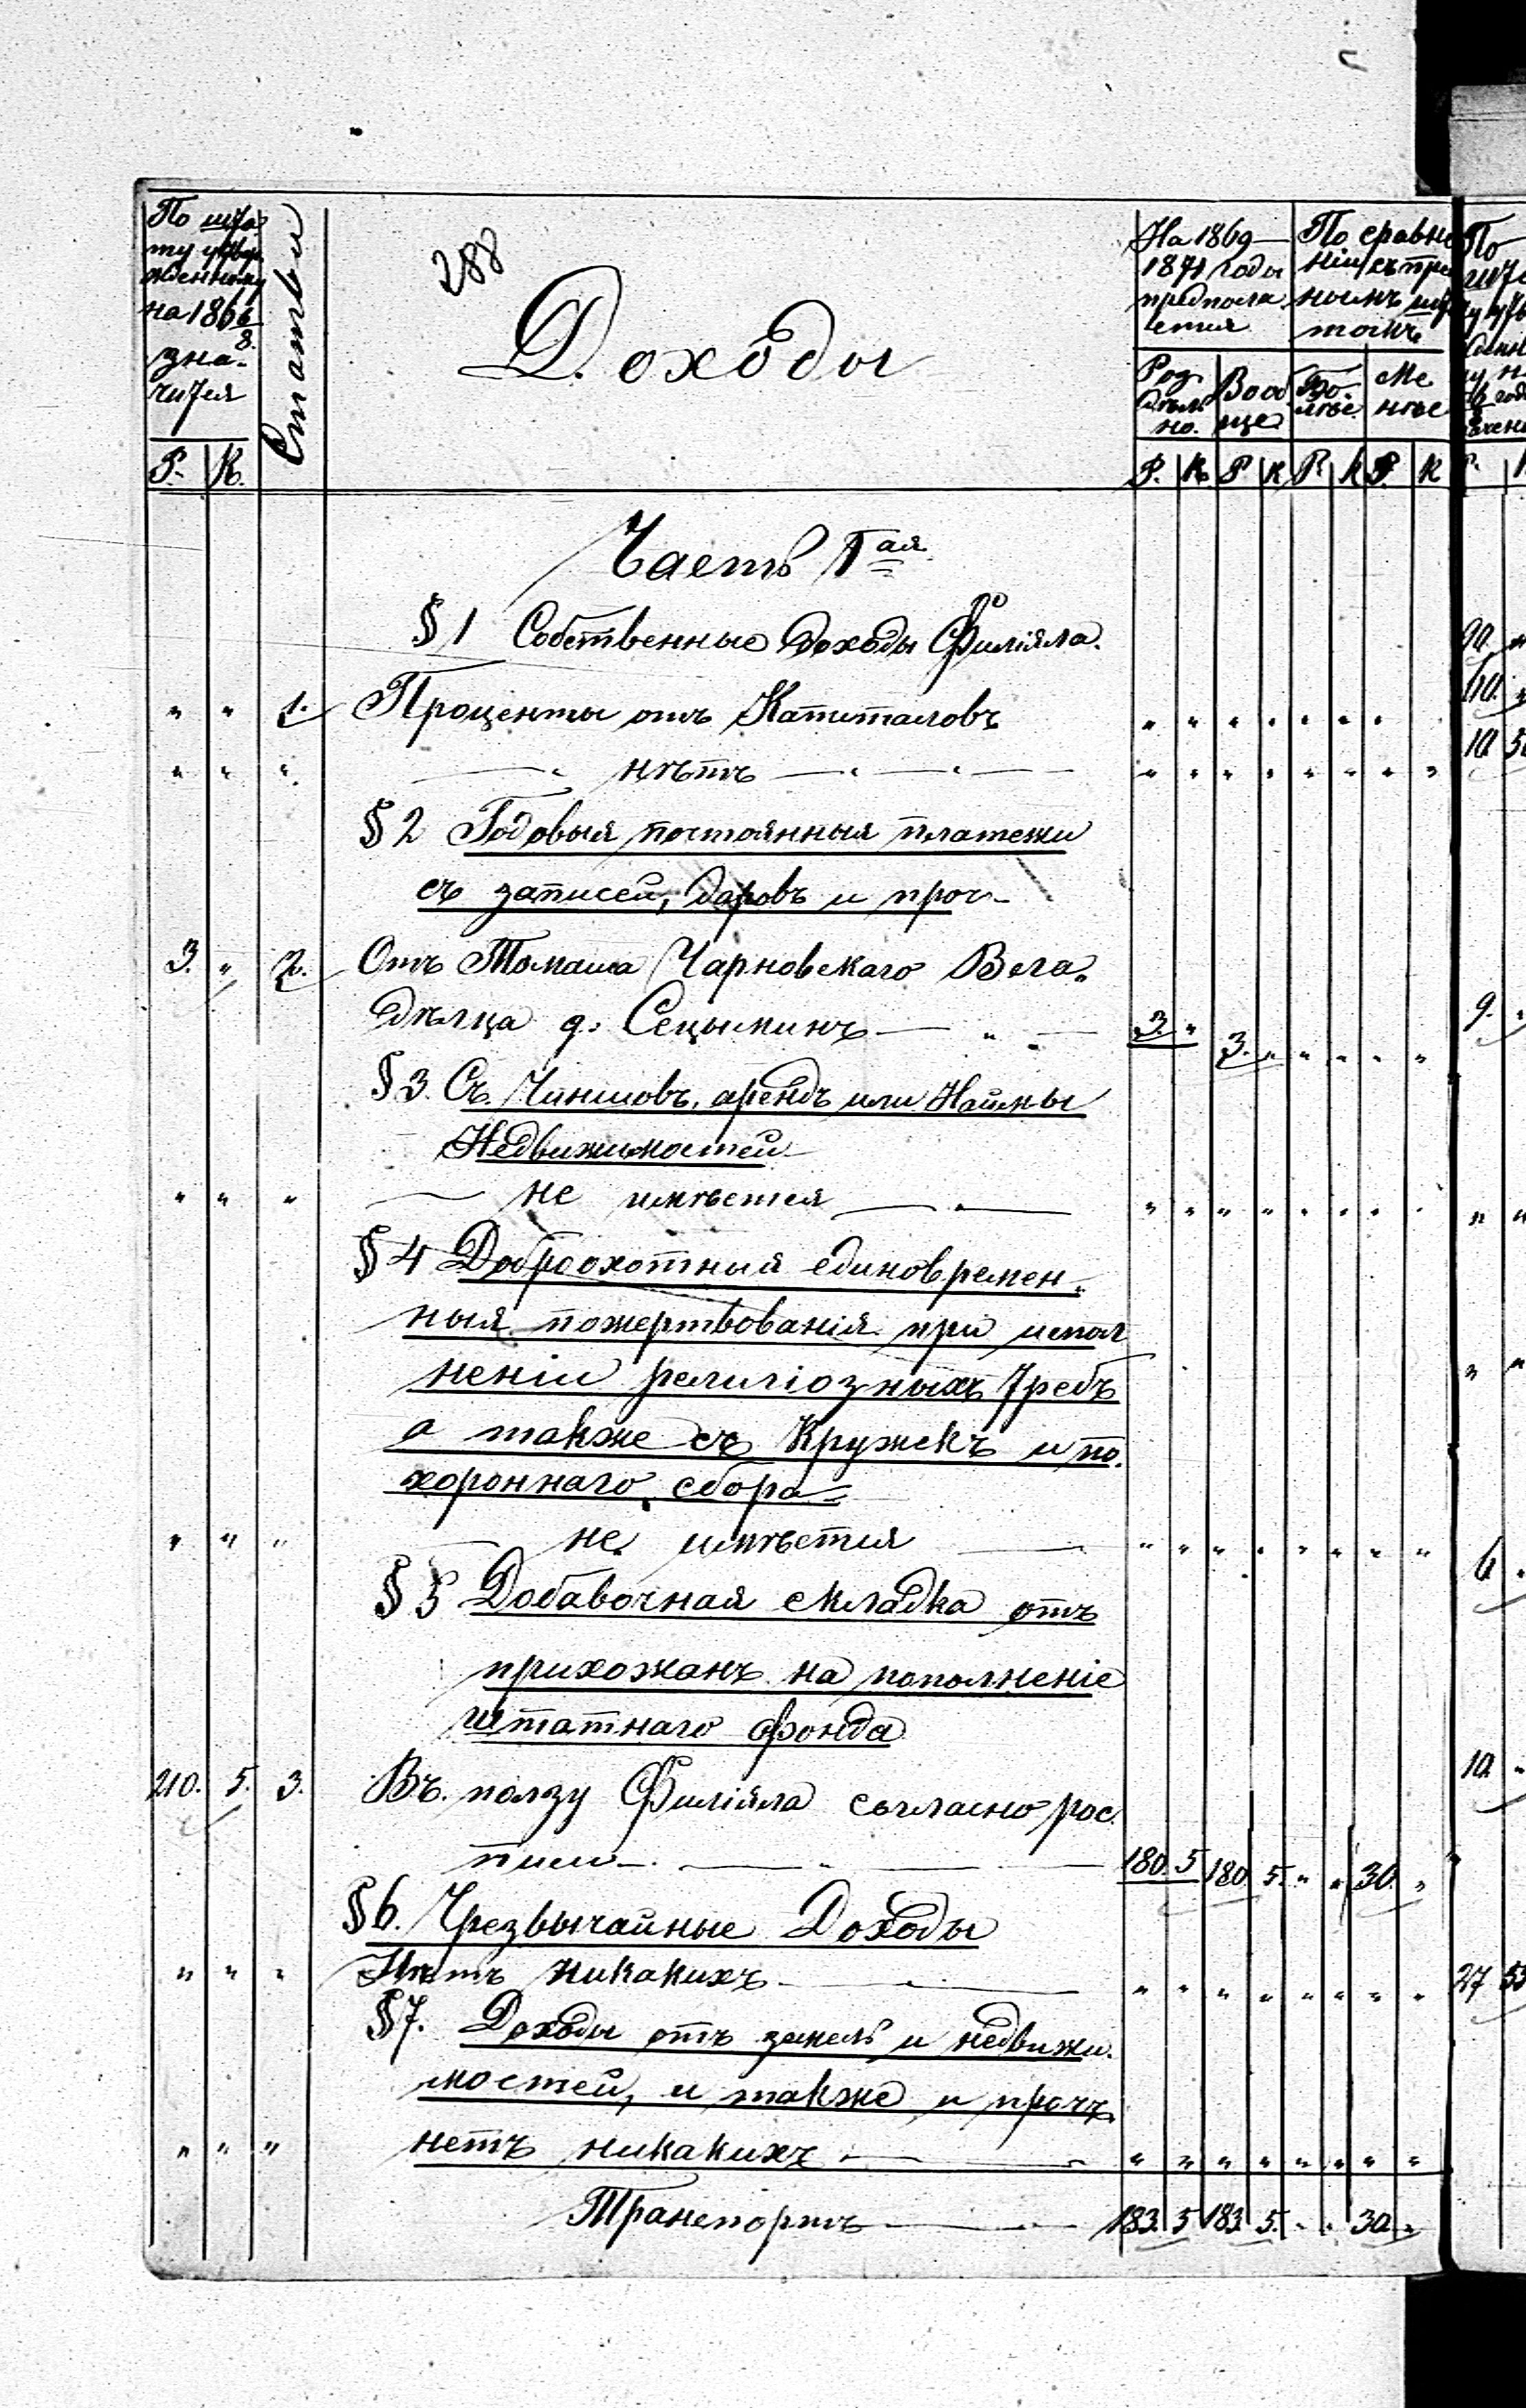 288
По шта-
ту утвер
жденному
на 1866/8
зна-
чится
Р. К.
Статьи
Доходы
На 1869—
1871 годы
предпола
гается
Роз
дѣль
но.
Вооб
ще
По сравне
нію съ пре
жнимъ шта
томъ
Бо
лѣе
Ме
нѣе
Р. К. Р К Р. К Р. К
Часть 1ая
§ 1 Собственные доходы Филіяла.
„ „ 1. Проценты отъ Капиталовъ „ „ „ „ „ „ „
„ „ „ — нѣтъ — „ — „ — „ „ „ „ „ „ „ „
§ 2 Годовыя постоянныя платежи
съ записей, даровъ и проч-
3. „ 2. Отъ Томаша Чарновскаго Вла-
дѣлца д. Сецыминъ — „ — 3. „ 3. „ „ „ „ „
§ 3. Съ Чиншовъ, арендъ или Наймы
Недвижимостей
„ „ „ — не имѣется — „ — „ „ „ „ „ „ „ „
§ 4 Доброохотныя единовремен-
ныя пожертвованія при испол
неніи религіозныхъ требъ
а также съ Кружекъ и по-
хороннаго сбора
„ „ „ — не имѣется — „ „ „ „ „ „ „ „
§ 5 Добавочная складка отъ
прихожанъ на пополненіе
штатнаго фонда
210. 5. 3. Въ ползу Филіяла согласно рос
писи — „ — 180. 5 180. 5. „ „ 30. „
§ 6. Чрезвычайные Доходы
„ „ „ Нѣтъ никакихъ — „ — „ „ „ „ „ „ „ „
§ 7. Доходы отъ земель и недвижи-
мостей, и также и прочъ.
„ „ „ нетъ никакихъ — „ — „ „ „ „ „ „ „ „
Транспортъ — 183. 5 183 5. „ „ 30. „